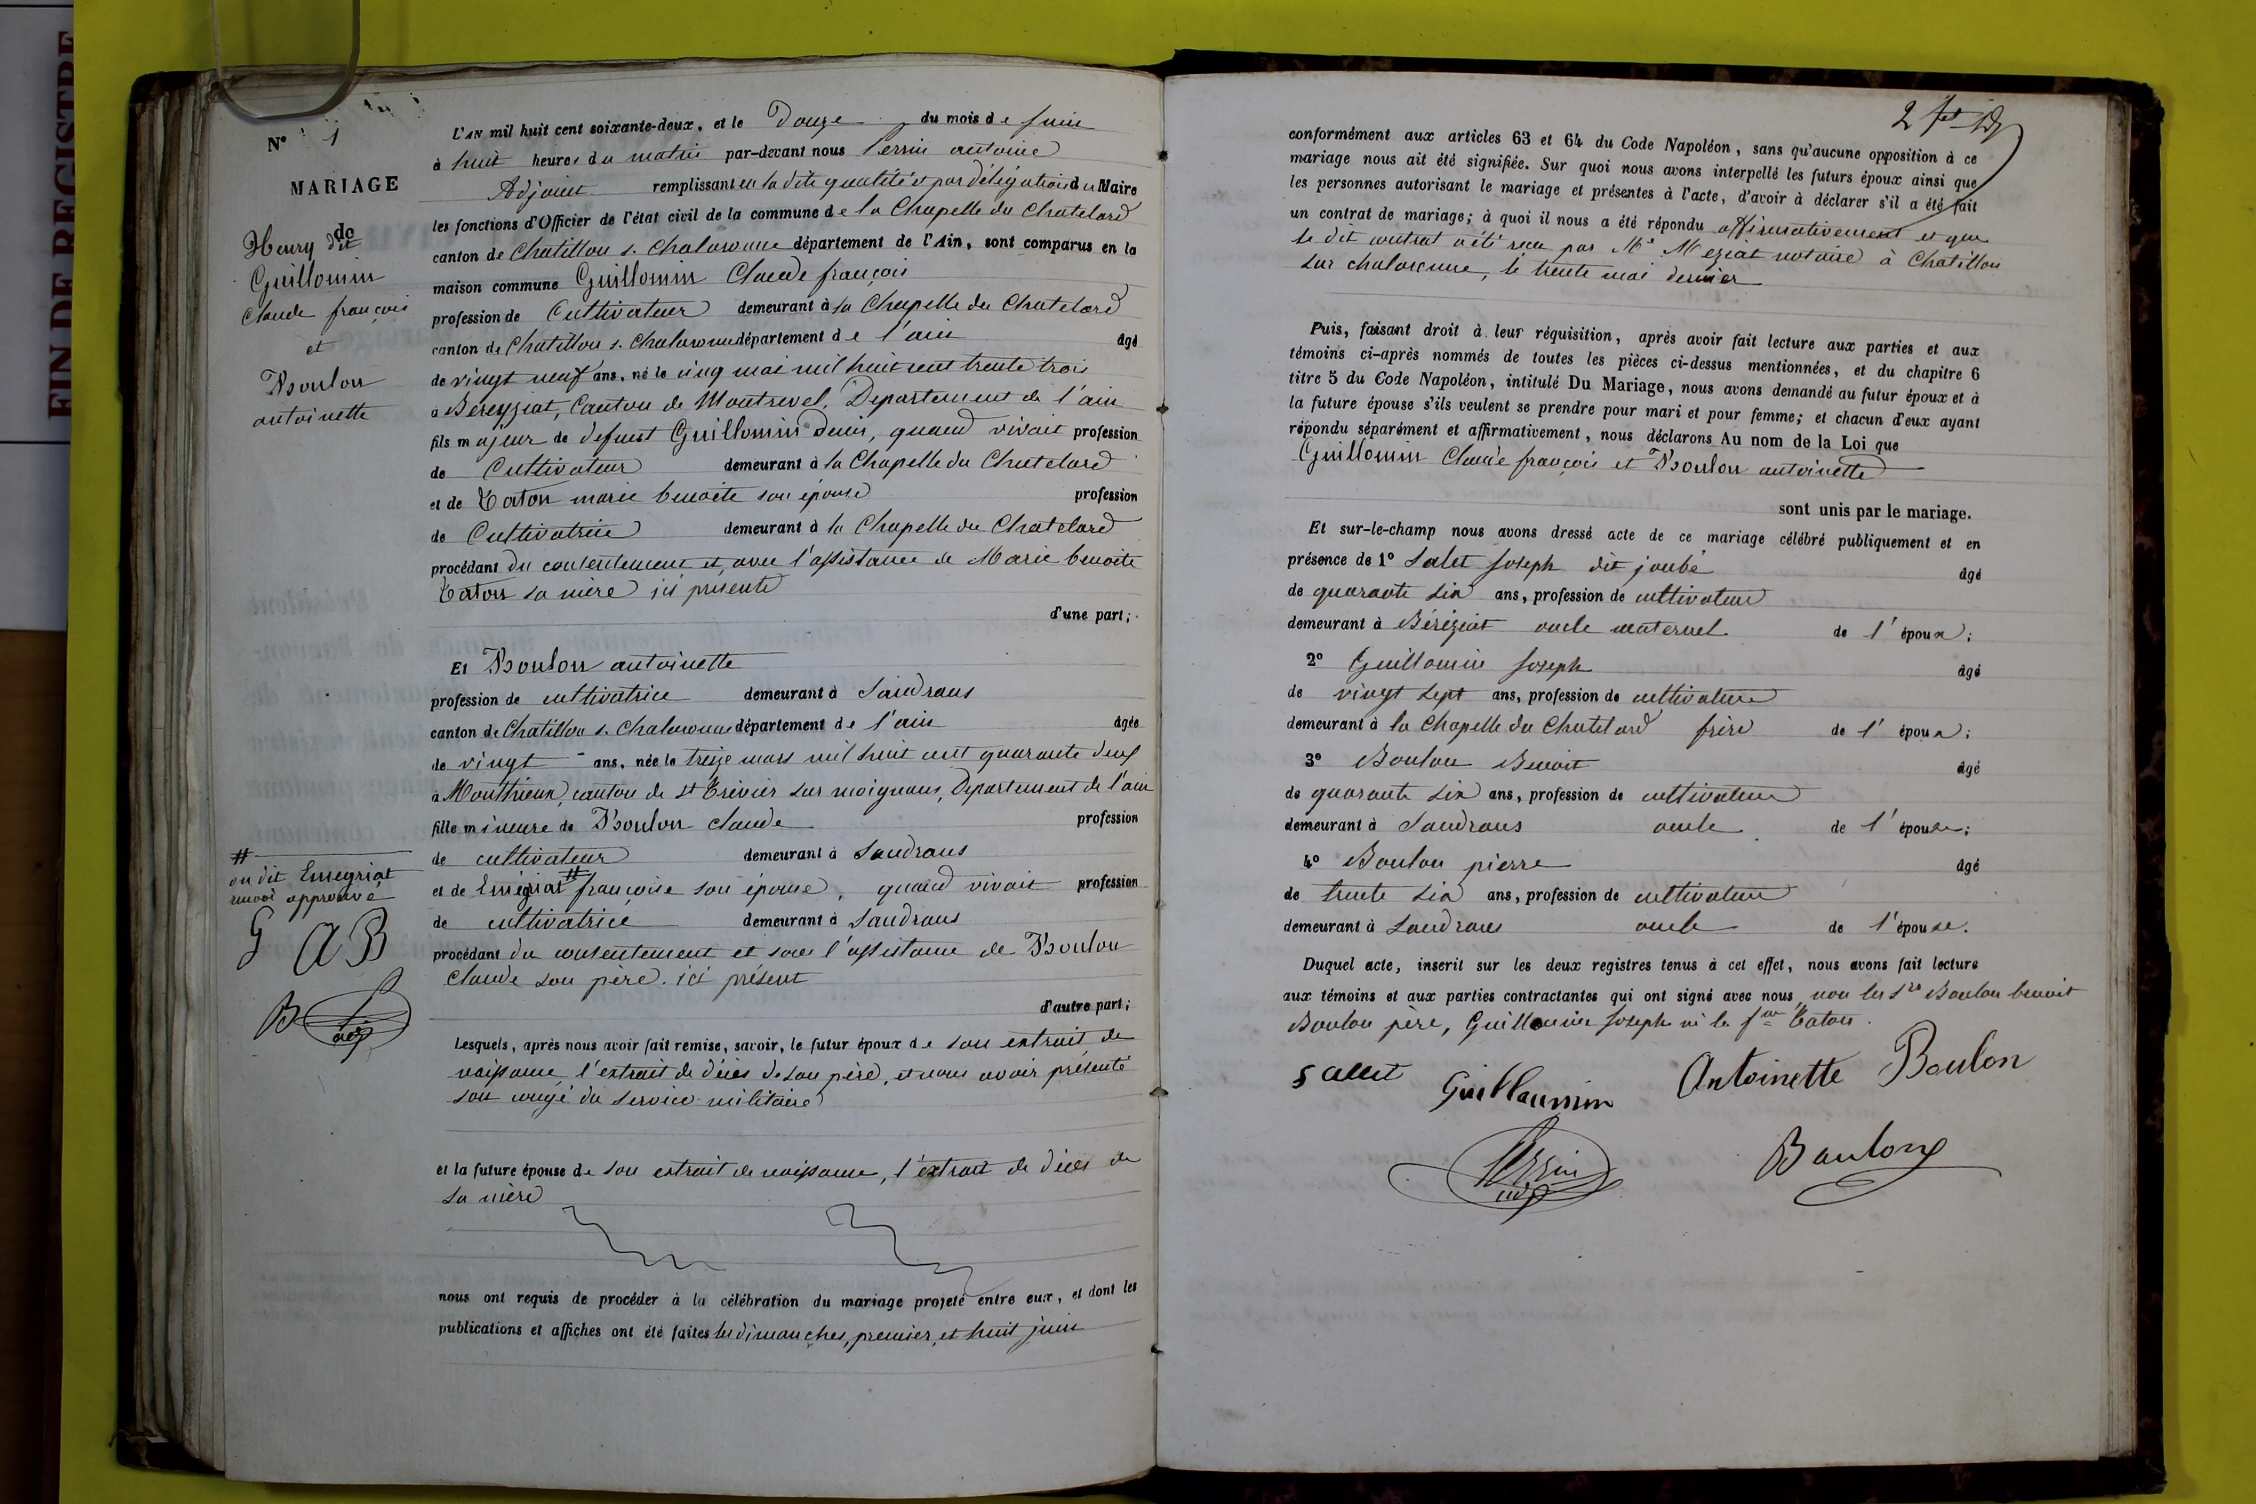 FIN DE REGISTRE
N° 1
MARIAGE
de
Henry dit
Guillomin
Claude françois
et
Boulon
antoinette
L'AN mil huit cent soixante-deux, et le Douze du mois de juin
à huit heures du matin par-devant nous Perrin antoine
Adjoint remplissant en la dite qualité et par délégation du Maire
les fonctions d'Officier de l'état civil de la commune de la Chapelle du Chatelard
canton de Chatillon s. Chalaronne département de l'Ain, sont comparus en la
maison commune Guillomin Claude françois
profession de Cultivateur demeurant à la Chapelle du Chatelard
canton de Chatillon s. Chalaronne département de l'ain âgé
de vingt neuf ans, né le cinq mai mil huit cent trente trois
à Béreyziat, Canton de Montrevel, Departement de l'ain
fils majeur de defunt Guillomin Denis, quand vivait profession
de Cultivateur demeurant à la Chapelle du Chatelard
et de Caton marie benoite son épouse profession
de Cultivatrice demeurant à la Chapelle du Chatelard
procédant du consentement et avec l'assistance de Marie benoite
Caton sa mère ici presente
d'une part;
Et Boulon antoinette
profession de cultivatrice demeurant à Sandrans
canton de Chatillon s. Chalaronne département de l'ain âgée
de vingt ans, née le treize mars mil huit cent quarante deux
à Monthieux, canton de st Trévier sur moignans, Departement de l'ain
fille mineure de Boulon claude profession
de cultivateur demeurant à Sandrans
et de Emégriat # françoise son épouse, quand vivait profession
de cultivatrice demeurant à Sandrans
procédant du consentement et sous l'assistance de Boulon
Claude son père ici présent
d'autre part;
#
ou dit Emegriat
renvoi approuvé
G A B
B
Lesquels, après nous avoir fait remise, savoir, le futur époux de son extrait de
naissance, l'extrait de décès de son père, et nous avoir présenté
son congé du service militaire
et la future épouse de son extrait de naissance, l'extrait de décès de
sa mère
nous ont requis de procéder à la célébration du mariage projeté entre eux, et dont les
publications et affiches ont été faites les dimanches, premier, et huit juin
2
conformément aux articles 63 et 64 du Code Napoléon, sans qu'aucune opposition à ce
mariage nous ait été signifiée. Sur quoi nous avons interpellé les futurs époux ainsi que
les personnes autorisant le mariage et présentes à l'acte, d'avoir à déclarer s'il a été fait
un contrat de mariage; à quoi il nous a été répondu affirmativement et que
le dit contrat a été recu par Me Meziat notaire à Chatillon
sur chalaronne, le trente mai dernier
Puis, faisant droit à leur réquisition, après avoir fait lecture aux parties et aux
témoins ci-après nommés de toutes les pièces ci-dessus mentionnées, et du chapitre 6
titre 5 du Code Napoléon, intitulé Du Mariage, nous avons demandé au futur époux et à
la future épouse s'ils veulent se prendre pour mari et pour femme; et chacun d'eux ayant
répondu séparément et affirmativement, nous déclarons Au nom de la Loi que
Guillomin Claude françois et Boulon antoinette
sont unis par le mariage.
Et sur-le-champ nous avons dressé acte de ce mariage célébré publiquement et en
présence de 1° Salet Joseph dit joubé âgé
de quarante six ans, profession de cultivateur
demeurant à Béréziat oncle maternel de l'époux;
2° Guillomin Joseph âgé
de vingt sept ans, profession de cultivateur
demeurant à la Chapelle du Chatelard frère de l'époux;
3° Boulon Benoit âgé
de quarante six ans, profession de cultivateur
demeurant à Sandrans oncle de l'épouse;
4° Boulon pierre âgé
de trente six ans, profession de cultivateur
demeurant à Sandrans oncle de l'épouse.
Duquel acte, inscrit sur les deux registres tenus à cet effet, nous avons fait lecture
aux témoins et aux parties contractantes qui ont signé avec nous non les srs Boulon benoit
Boulon père, Guillomin Joseph ni la fme Caton.
Sallet Guillaumin Antoinette Boulon
Perrin adj
Boulon